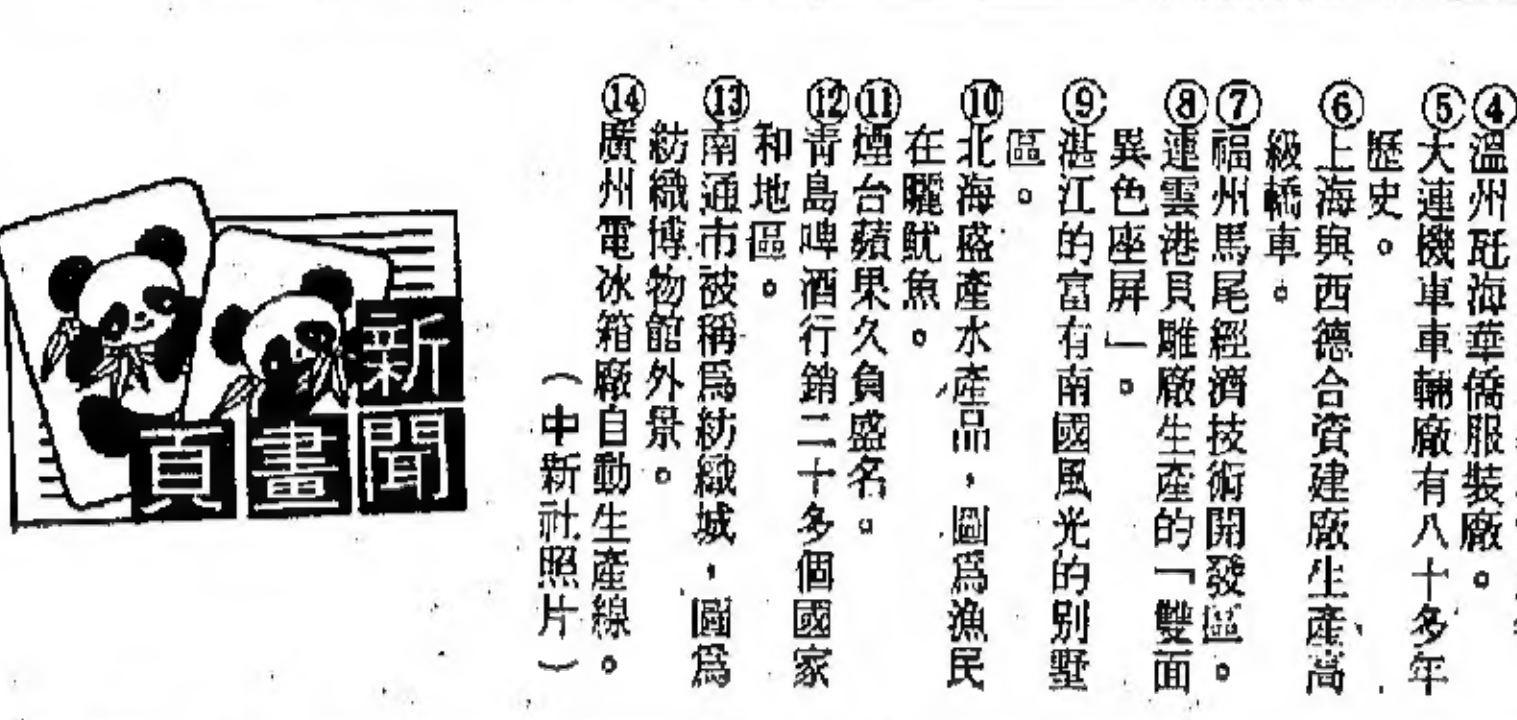 ④溫州甌海華僑服裝廠。
⑤大連機車車輛廠有八十多年
歷史。
⑥上海與西德合資建廠生產高
級轎車。
⑦福州馬尾經濟技術開發區。
⑧連雲港貝雕廠生產的「雙面
異色座屏」。
⑨湛江的富有南國風光的別墅
區。
⑩北海盛產水產品,圖爲漁民
在曬魷魚。
⑪煙台蘋果久負盛名。
⑫青島啤酒行銷二十多個國家
和地區。
⑬南通市被稱爲紡織城,圖爲
紡織博物館外景。
⑭廣州電冰箱廠自動生產線。
(中新社照片)
新聞
畫頁